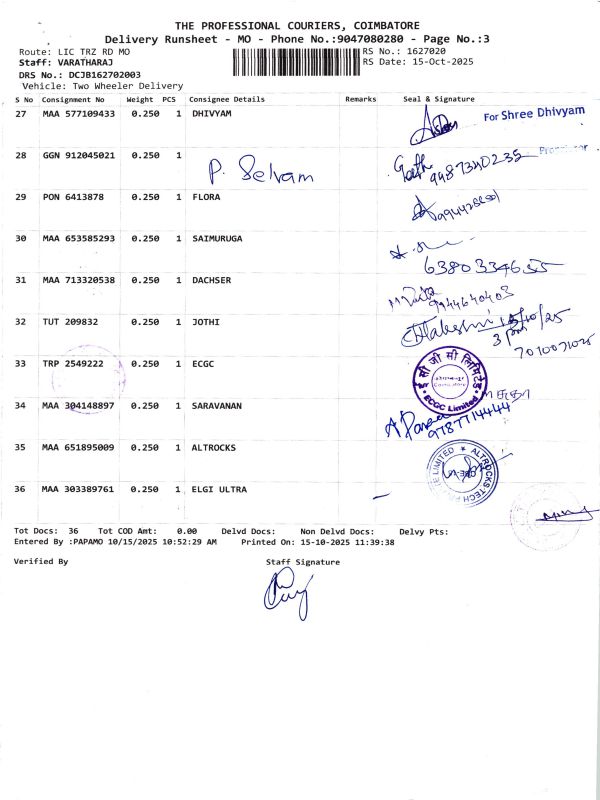 THE PROFESSIONAL COURIERS, COIMBATORE
Delivery Runsheet - MO - Phone No.:9047080280 - Page No.:3
Route: LIC TRZ RD MO
RS No.: 1627020
Staff: VARATHARAJ
RS Date: 15-Oct-2025
DRS No.: DCJB162702003
Vehicle: Two Wheeler Delivery
S No Consignment No Weight PCS Consignee Details Remarks Seal & Signature
27 MAA 577109433 0.250 1 DHIVYAM For Shree Dhivyam
28 GGN 912045021 0.250 1 P. Selvam 9987340235
29 PON 6413878 0.250 1 FLORA
30 MAA 653585293 0.250 1 SAIMURUGA 6380334655
31 MAA 713320538 0.250 1 DACHSER 9944640403
32 TUT 209832 0.250 1 JOTHI 15/10/25
3 pm
7010071025
33 TRP 2549222 0.250 1 ECGC ई सी जी सी लिमिटेड
Coimbatore
ECGC Limited
34 MAA 304148897 0.250 1 SARAVANAN 9787714444
35 MAA 651895009 0.250 1 ALTROCKS ALTROCKS TECH
36 MAA 303389761 0.250 1 ELGI ULTRA
Tot Docs: 36 Tot COD Amt: 0.00 Delvd Docs: Non Delvd Docs: Delvy Pts:
Entered By :PAPAMO 10/15/2025 10:52:29 AM Printed On: 15-10-2025 11:39:38
Verified By Staff Signature